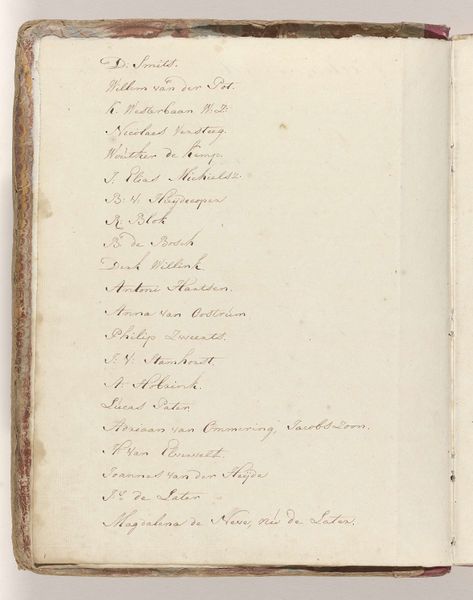 D: Smits.
Willem van der Pot.
K. Westerbaan W:Z:
Nicolaes Versteeg.
Wouther de Kemp.
J: Elias Michielsz:
B: V: Heydecoper
R: Blok
B: de Bosch
Dirk Willink
Antoni Hartsen.
Anna van Oostrum
Philip Zweerts.
J: V: Stamhorst.
A: Hobrink.
Lucas Pater
Adriaan van Ommering, Jacobs Zoon.
H: van
Joannes van der Heyde
Jr. de Later
Magdalena de Neve, née de Later.